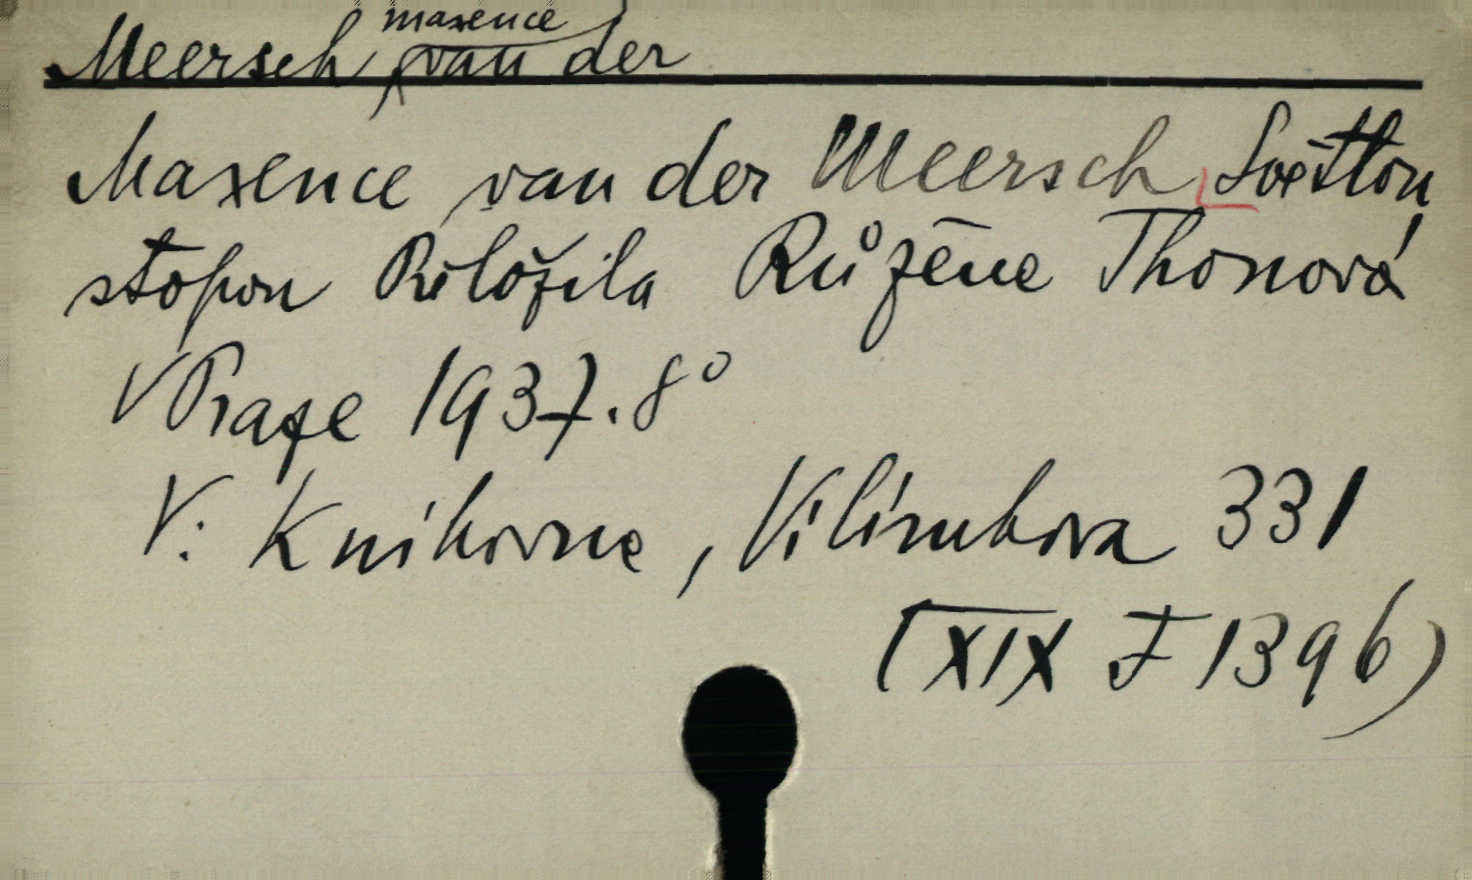 Meersch Maxence van der
Maxence van der Meersch Světlou
stopou Přeložila Růžena Thonová
V Praze 1937. 8°
V: Knihovna, Vilímkova 331
(XIX F 1396)